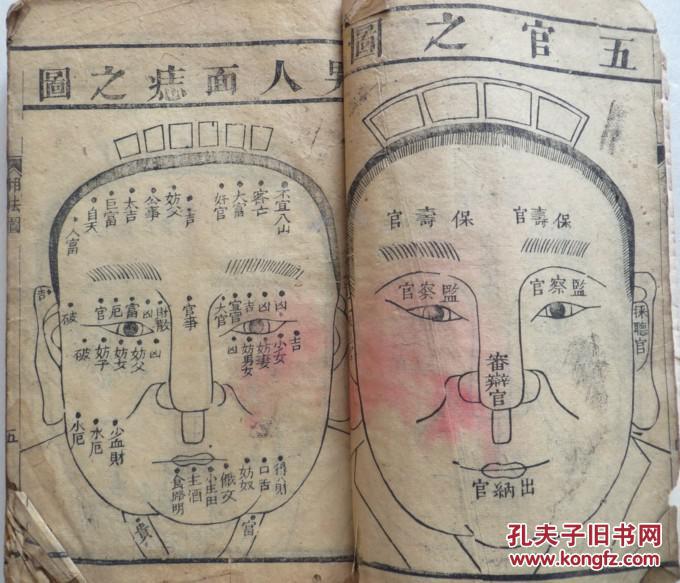 五官之圖
保壽官
保壽官
監察官
監察官
採聽官
審辯官
出納官
人面痣之圖
不宜八山
客亡
大富
奸官
吉
妨父
公事
大吉
巨富
自天
人富
吉
凶
凶
吉
大官
官事
財散
凶
富
厄
官
破
吉
少女
妨妻
妨男女
凶
凶
妨父
妨女
妨子
破
少血財
水厄
水厄
口舌
妨奴
主酒
食歸明
富
貴
相法圖
五
孔夫子旧书网
www.kongfz.com